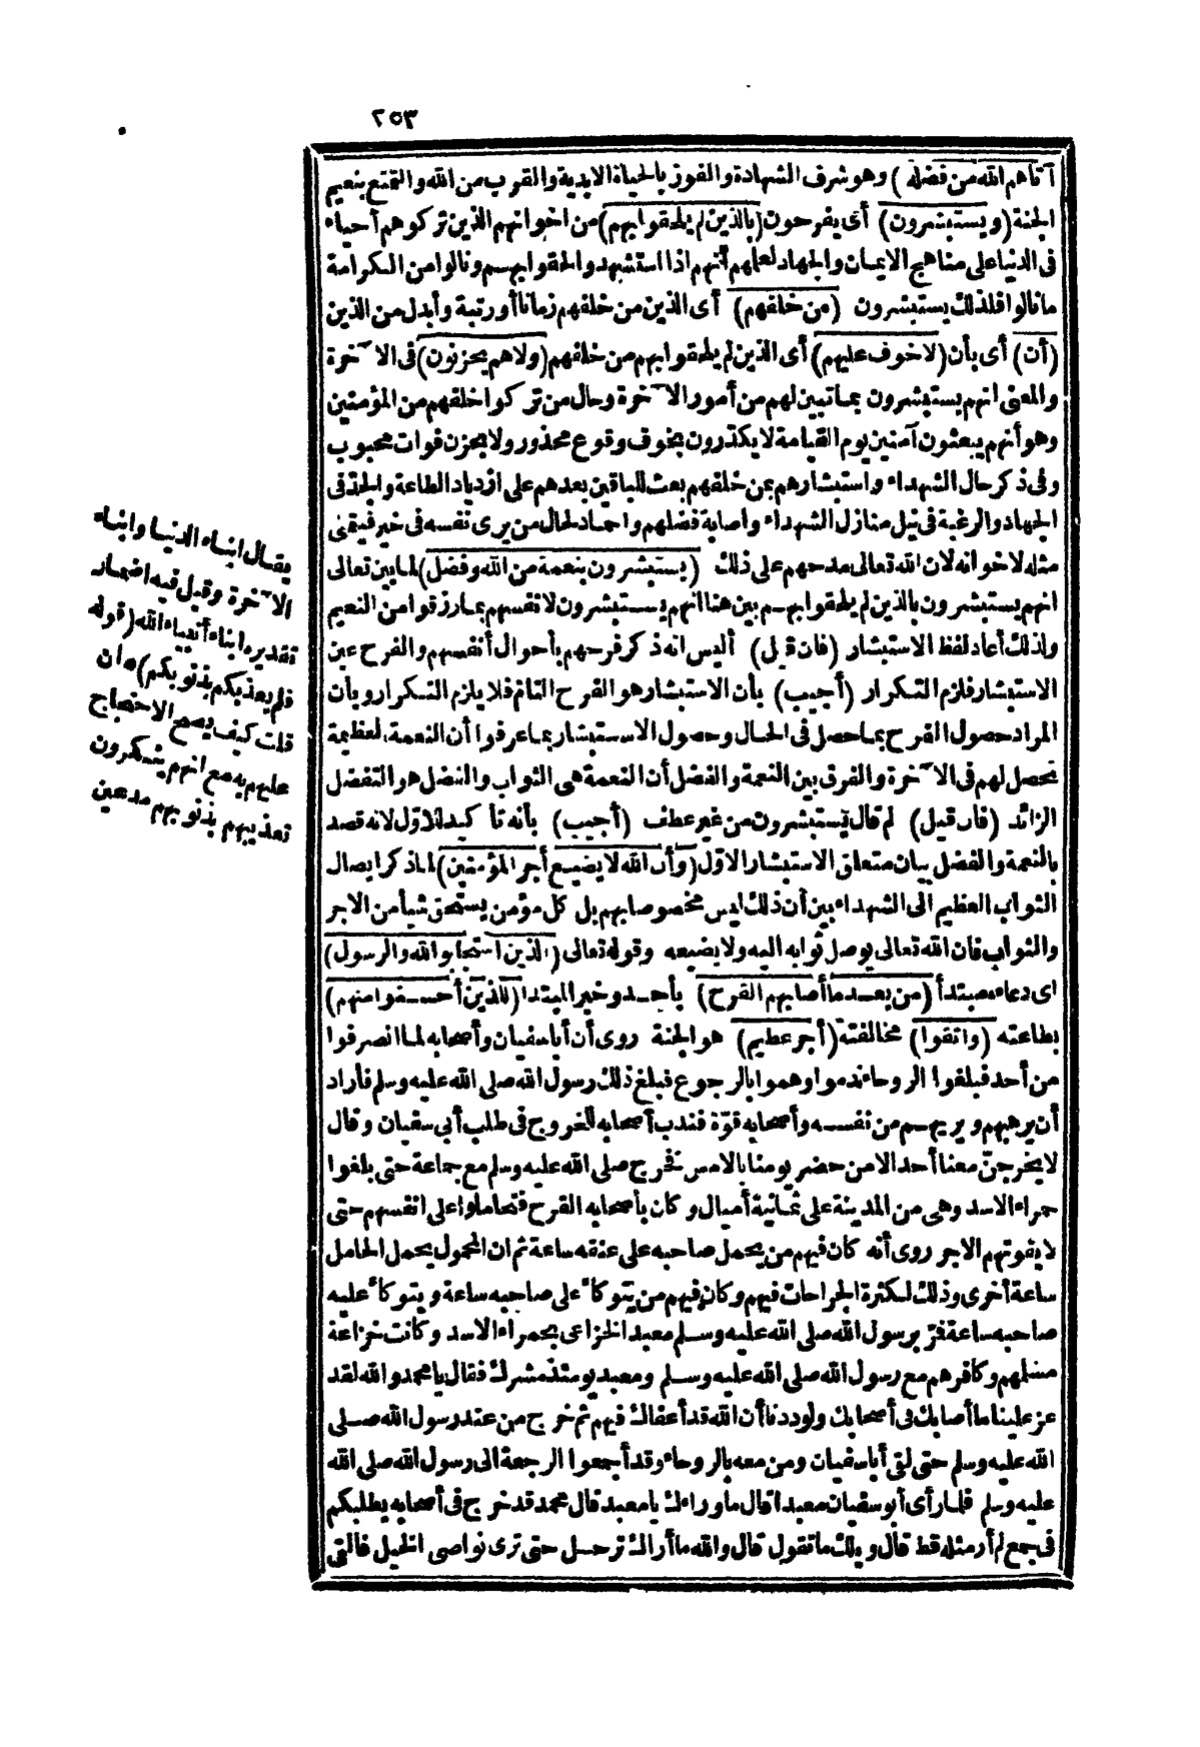 ٢٥٣
آتاهم الله من فضله) وهو شرف الشهادة والفوز بالحياة الابدية والقرب من الله والتمتع بنعيم
الجنة (ويستبشرون) أى يفرحون (بالذين لم يلحقوا بهم) من اخوانهم الذين تركوهم أحياء
فى الدنيا على مناهج الايمان والجهاد لعلمهم أنهم اذا استشهدوا لحقوا بهم ونالوا من الكرامة
ما نالوا فلذلك يستبشرون (من خلفهم) أى الذين من خلفهم زمانا أو رتبة وأبدل من الذين
(أن) أى بأن (لا خوف عليهم) أى الذين لم يلحقوا بهم من خلفهم (ولا هم يحزنون) فى الآخرة
والمعنى انهم يستبشرون بما تبين لهم من أمور الآخرة وحال من تركوا خلفهم من المؤمنين
وهو أنهم يبعثون آمنين يوم القيامة لا يكدرون بخوف وقوع محذور ولا بحزن فوات محبوب
وفى ذكر حال الشهداء واستبشارهم بمن خلفهم بعث للباقين بعدهم على ازدياد الطاعة والجد فى
الجهاد والرغبة فى نيل منازل الشهداء واصابة فضلهم واحماد لحال من يرى نفسه فى خير فيتمنى
مثله لاخوانه لان الله تعالى مدحهم على ذلك (يستبشرون بنعمة من الله وفضل) لما بين تعالى
انهم يستبشرون بالذين لم يلحقوا بهم بين هنا انهم يستبشرون لانفسهم بما رزقوا من النعيم
ولذلك أعاد لفظ الاستبشار (فان قيل) أليس انه ذكر فرحهم بأحوال أنفسهم والفرح عين
الاستبشار فلزم التكرار (أجيب) بأن الاستبشار هو الفرح التام فلا يلزم التكرار وبأن
المراد حصول الفرح بما حصل فى الحال وحصول الاستبشار بما عرفوا أن النعمة العظيمة
تحصل لهم فى الآخرة والفرق بين النعمة والفضل أن النعمة هى الثواب والفضل هو التفضل
الزائد (فان قيل) لم قال يستبشرون من غير عطف (أجيب) بأنه تأكيد للاوّل لانه قصد
بالنعمة والفضل بيان متعلق الاستبشار الاوّل (وأن الله لا يضيع أجر المؤمنين) لما ذكر ايصال
الثواب العظيم الى الشهداء بين أن ذلك ليس مخصوصا بهم بل كل مؤمن يستحق شيأ من الاجر
والثواب فان الله تعالى يوصل ثوابه اليه ولا يضيعه وقوله تعالى (الذين استجابوا لله والرسول)
اى دعاءه مبتدأ (من بعد ما أصابهم القرح) بأحد وخبر المبتدا (للذين أحسنوا منهم)
بطاعته (واتقوا) مخالفته (أجر عظيم) هو الجنة روى أن أبا سفيان وأصحابه لما انصرفوا
من أحد فبلغوا الروحاء ندموا وهموا بالرجوع فبلغ ذلك رسول الله صلى الله عليه وسلم فأراد
أن يرهبهم ويريهم من نفسه وأصحابه قوّة فندب أصحابه للخروج فى طلب أبى سفيان وقال
لا يخرجنّ معنا أحد الا من حضر يومنا بالامس فخرج صلى الله عليه وسلم مع جماعة حتى بلغوا
حمراء الاسد وهى من المدينة على ثمانية أميال وكان بأصحابه القرح فتحاملوا على انفسهم حتى
لا يفوتهم الاجر روى أنه كان فيهم من يحمل صاحبه على عنقه ساعة ثم ان المحمول يحمل الحامل
ساعة أخرى وذلك لكثرة الجراحات فيهم وكان فيهم من يتوكأ على صاحبه ساعة ويتوكأ عليه
صاحبه ساعة فمرّ برسول الله صلى الله عليه وسلم معبد الخزاعى بحمراء الاسد وكانت خزاعة
مسلمهم وكافرهم مع رسول الله صلى الله عليه وسلم ومعبد يومئذ مشرك فقال يا محمد والله لقد
عز علينا ما أصابك فى أصحابك ولوددنا أن الله قد أعفاك فيهم ثم خرج من عند رسول الله صلى
الله عليه وسلم حتى لقى أبا سفيان ومن معه بالروحاء وقد أجمعوا الرجعة الى رسول الله صلى الله
عليه وسلم فلما رأى أبو سفيان معبدا قال ما وراءك يا معبد قال محمد قد خرج فى أصحابه يطلبكم
فى جمع لم أر مثله قط قال ويلك ما تقول قال والله ما أراك ترحل حتى ترى نواصى الخيل قال
يقال ابناء الدنيا وابناء
الآخرة وقيل فيه اضمار
تقديره ابناء أنبياء الله (قوله
فلم يعذبكم بذنوبكم) ان
قلت كيف يصح الاحتجاج
عليهم به مع انهم ينكرون
تعذيبهم بذنوبهم مدعين